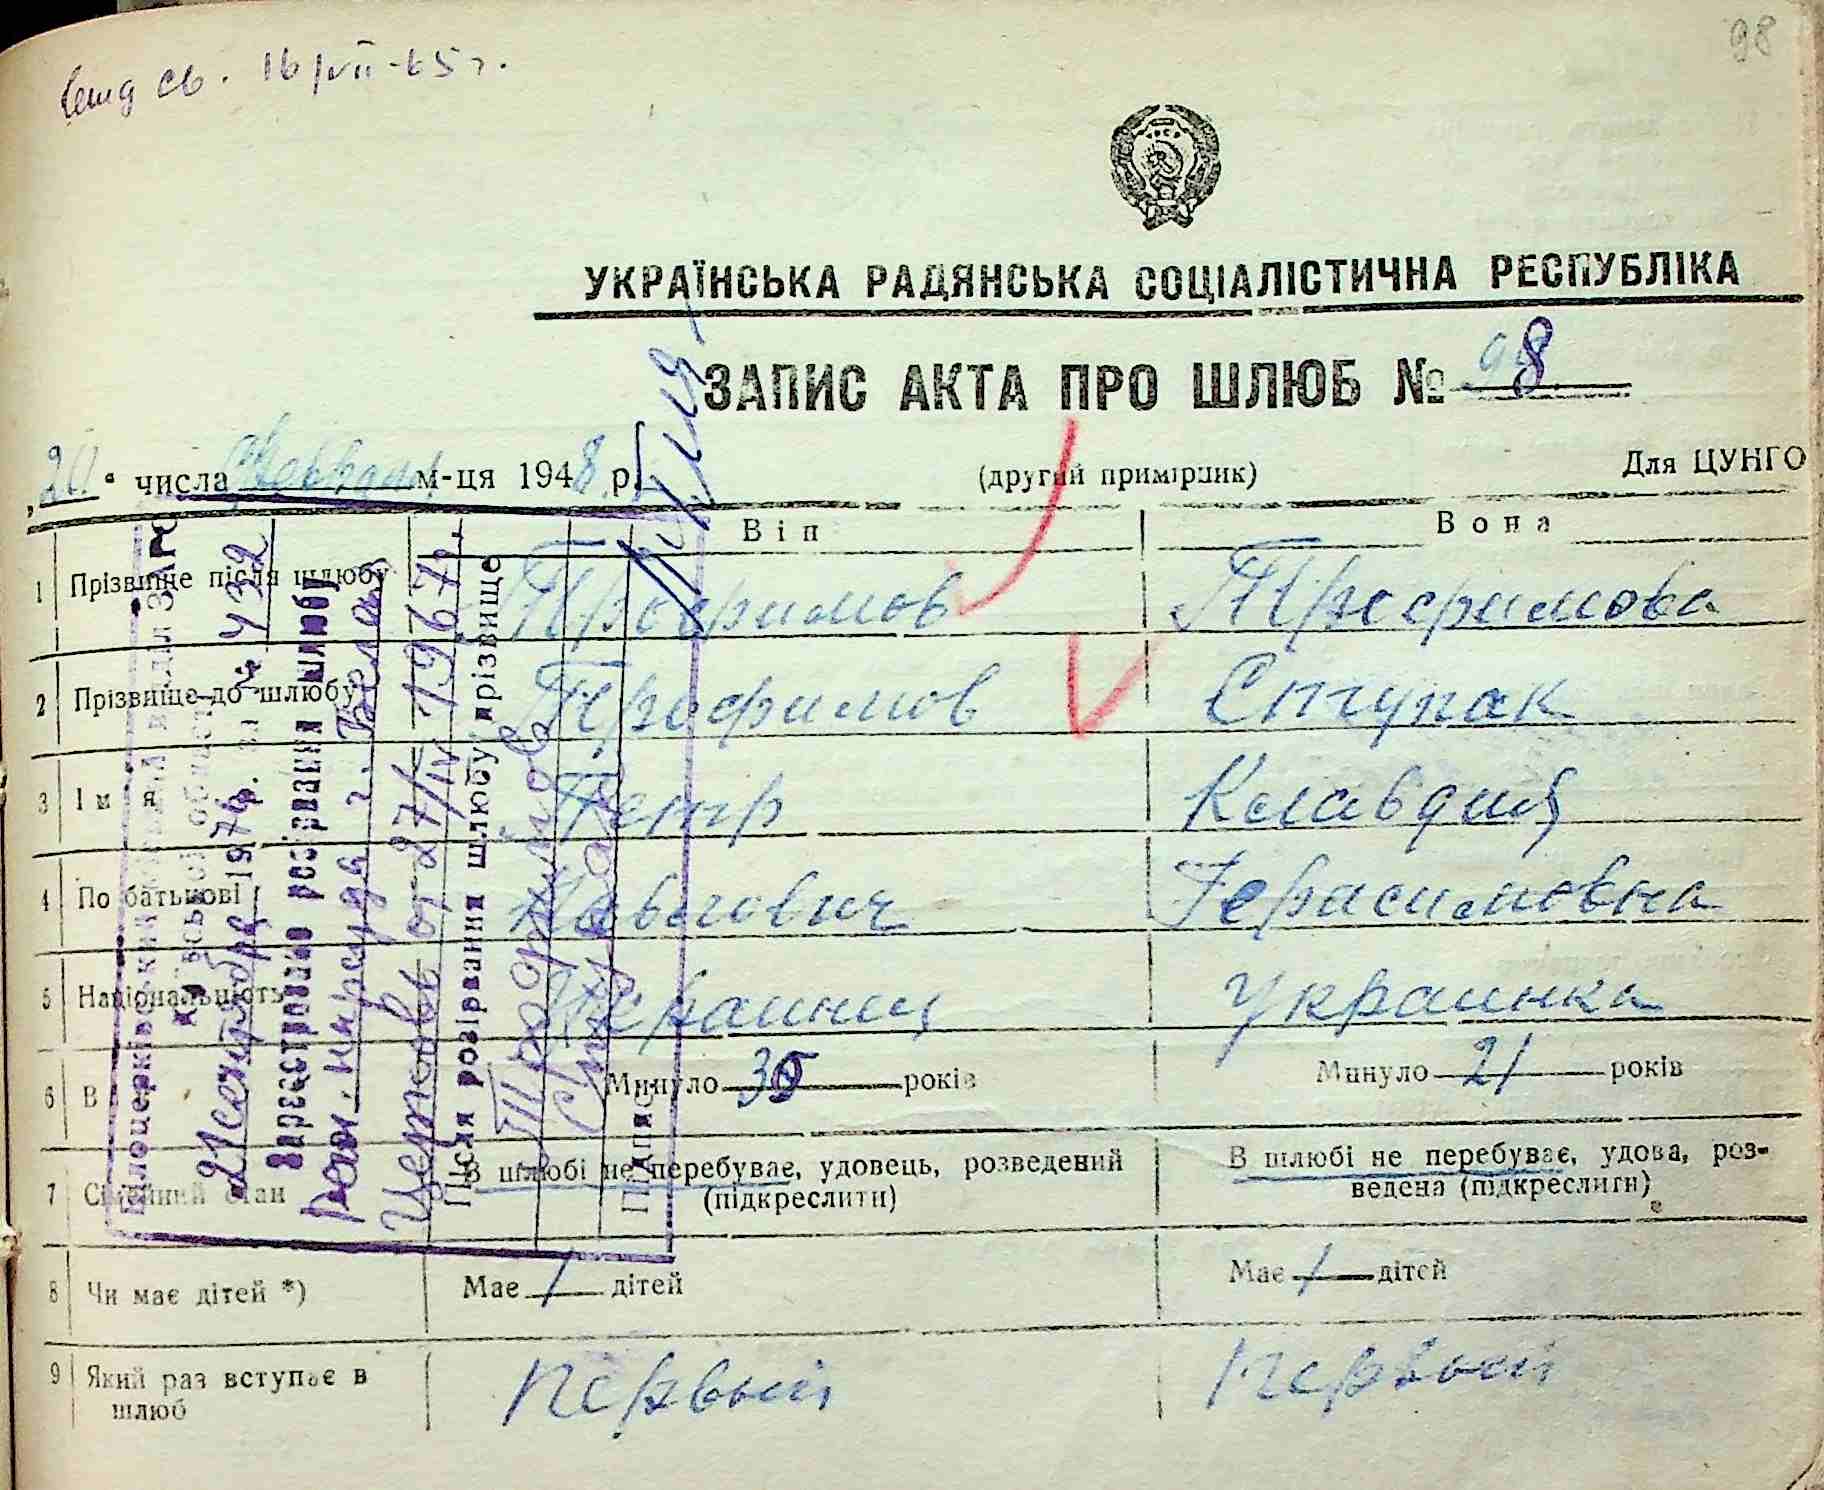 98
св. 16/VII-65 г.
УКРАЇНСЬКА РАДЯНСЬКА СОЦІАЛІСТИЧНА РЕСПУБЛІКА
ЗАПИС АКТА ПРО ШЛЮБ № 98
"20" числа февраля м-ця 1948 р. (другий примірник) Для ЦУНГО
Він Вона
1 Прізвище після шлюбу Трофимов Трофимова
2 Прізвище до шлюбу Трофимов Ступак
3 Ім'я Петр Клавдия
4 По батькові Павлович Герасимовна
5 Національність Украинец Украинка
6 В Минуло 35 років Минуло 21 років
7 Сімейний стан В шлюбі не перебуває, удовець, розведений (підкреслити) В шлюбі не перебуває, удова, роз-
ведена (підкреслити)
8 Чи має дітей *) Має / дітей Має / дітей
9 Який раз вступає в
шлюб Первый Первый
Білоцерківський відділ ЗАГС
Київської області
21 сентября 1976 р. за № 432
Зареєстровано розірвання шлюбу
реш. нарсуда г. Белая
Церковь от 27/IV 1967 г.
Після розірвання шлюбу прізвище
Трофимов
Ступак
Підпис